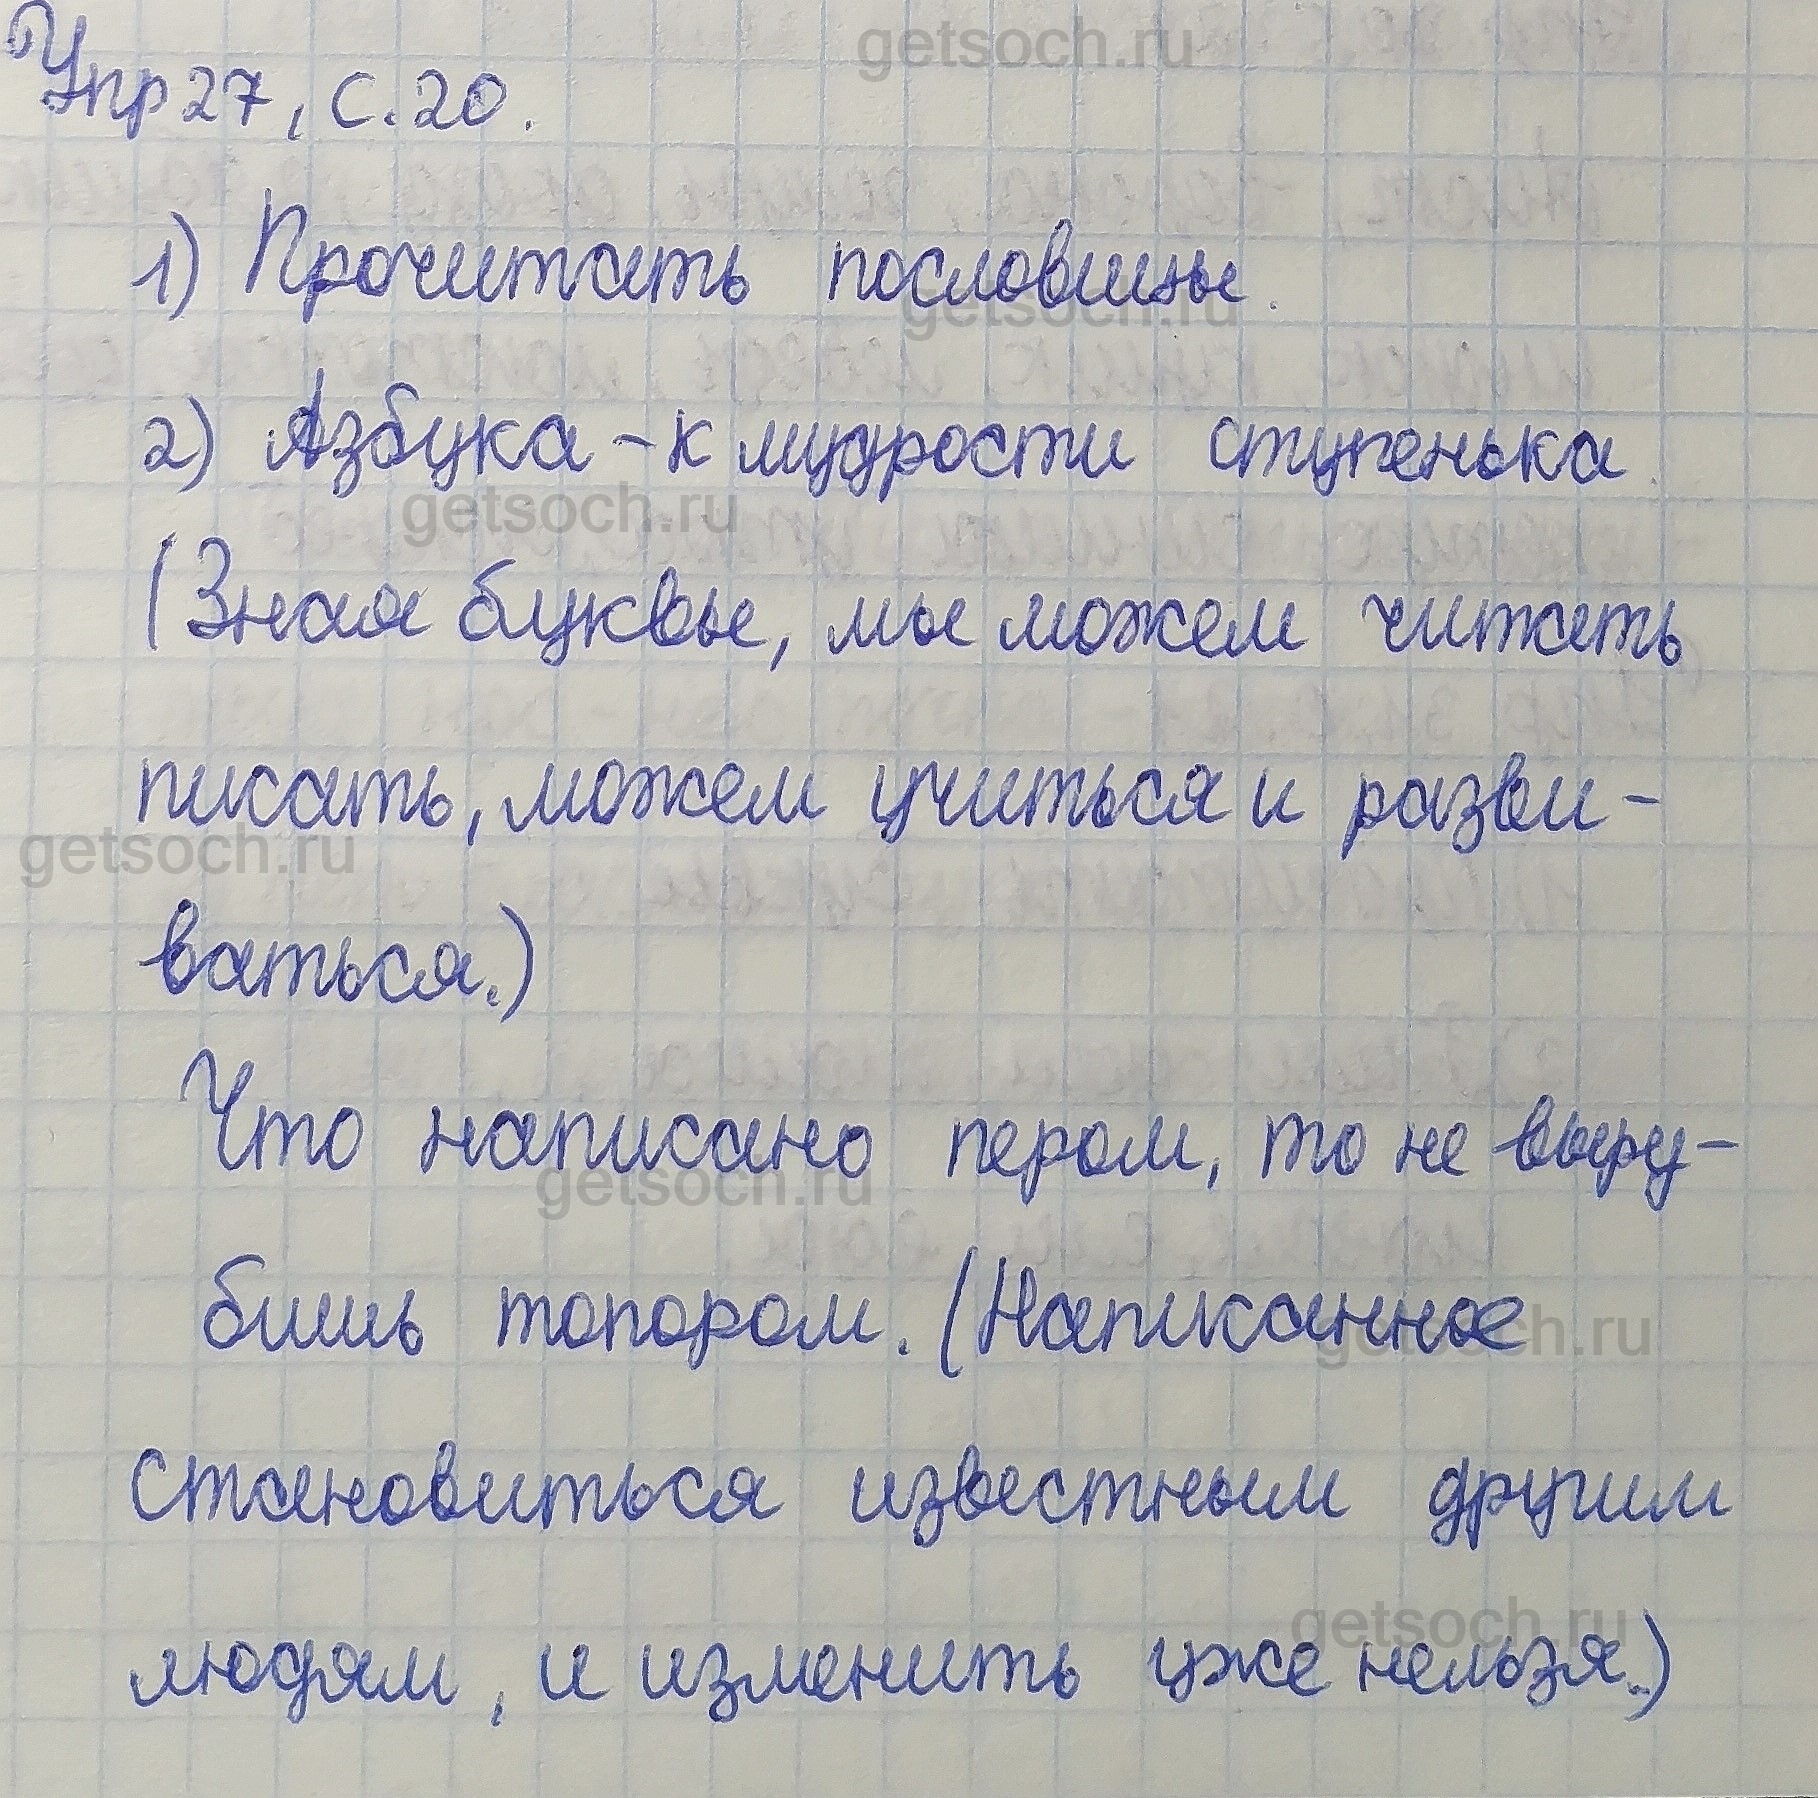 getsoch.ru
Упр 27, с. 20.
1) Прочитать пословицы.
getsoch.ru
2) Азбука - к мудрости ступенька.
getsoch.ru
(Зная буквы, мы можем читать
писать, можем учиться и разви-
getsoch.ru
ваться.)
Что написано пером, то не выру-
getsoch.ru
бишь топором. (Написанное
getsoch.ru
становиться известным другим
getsoch.ru
людям, и изменить уже нельзя.)